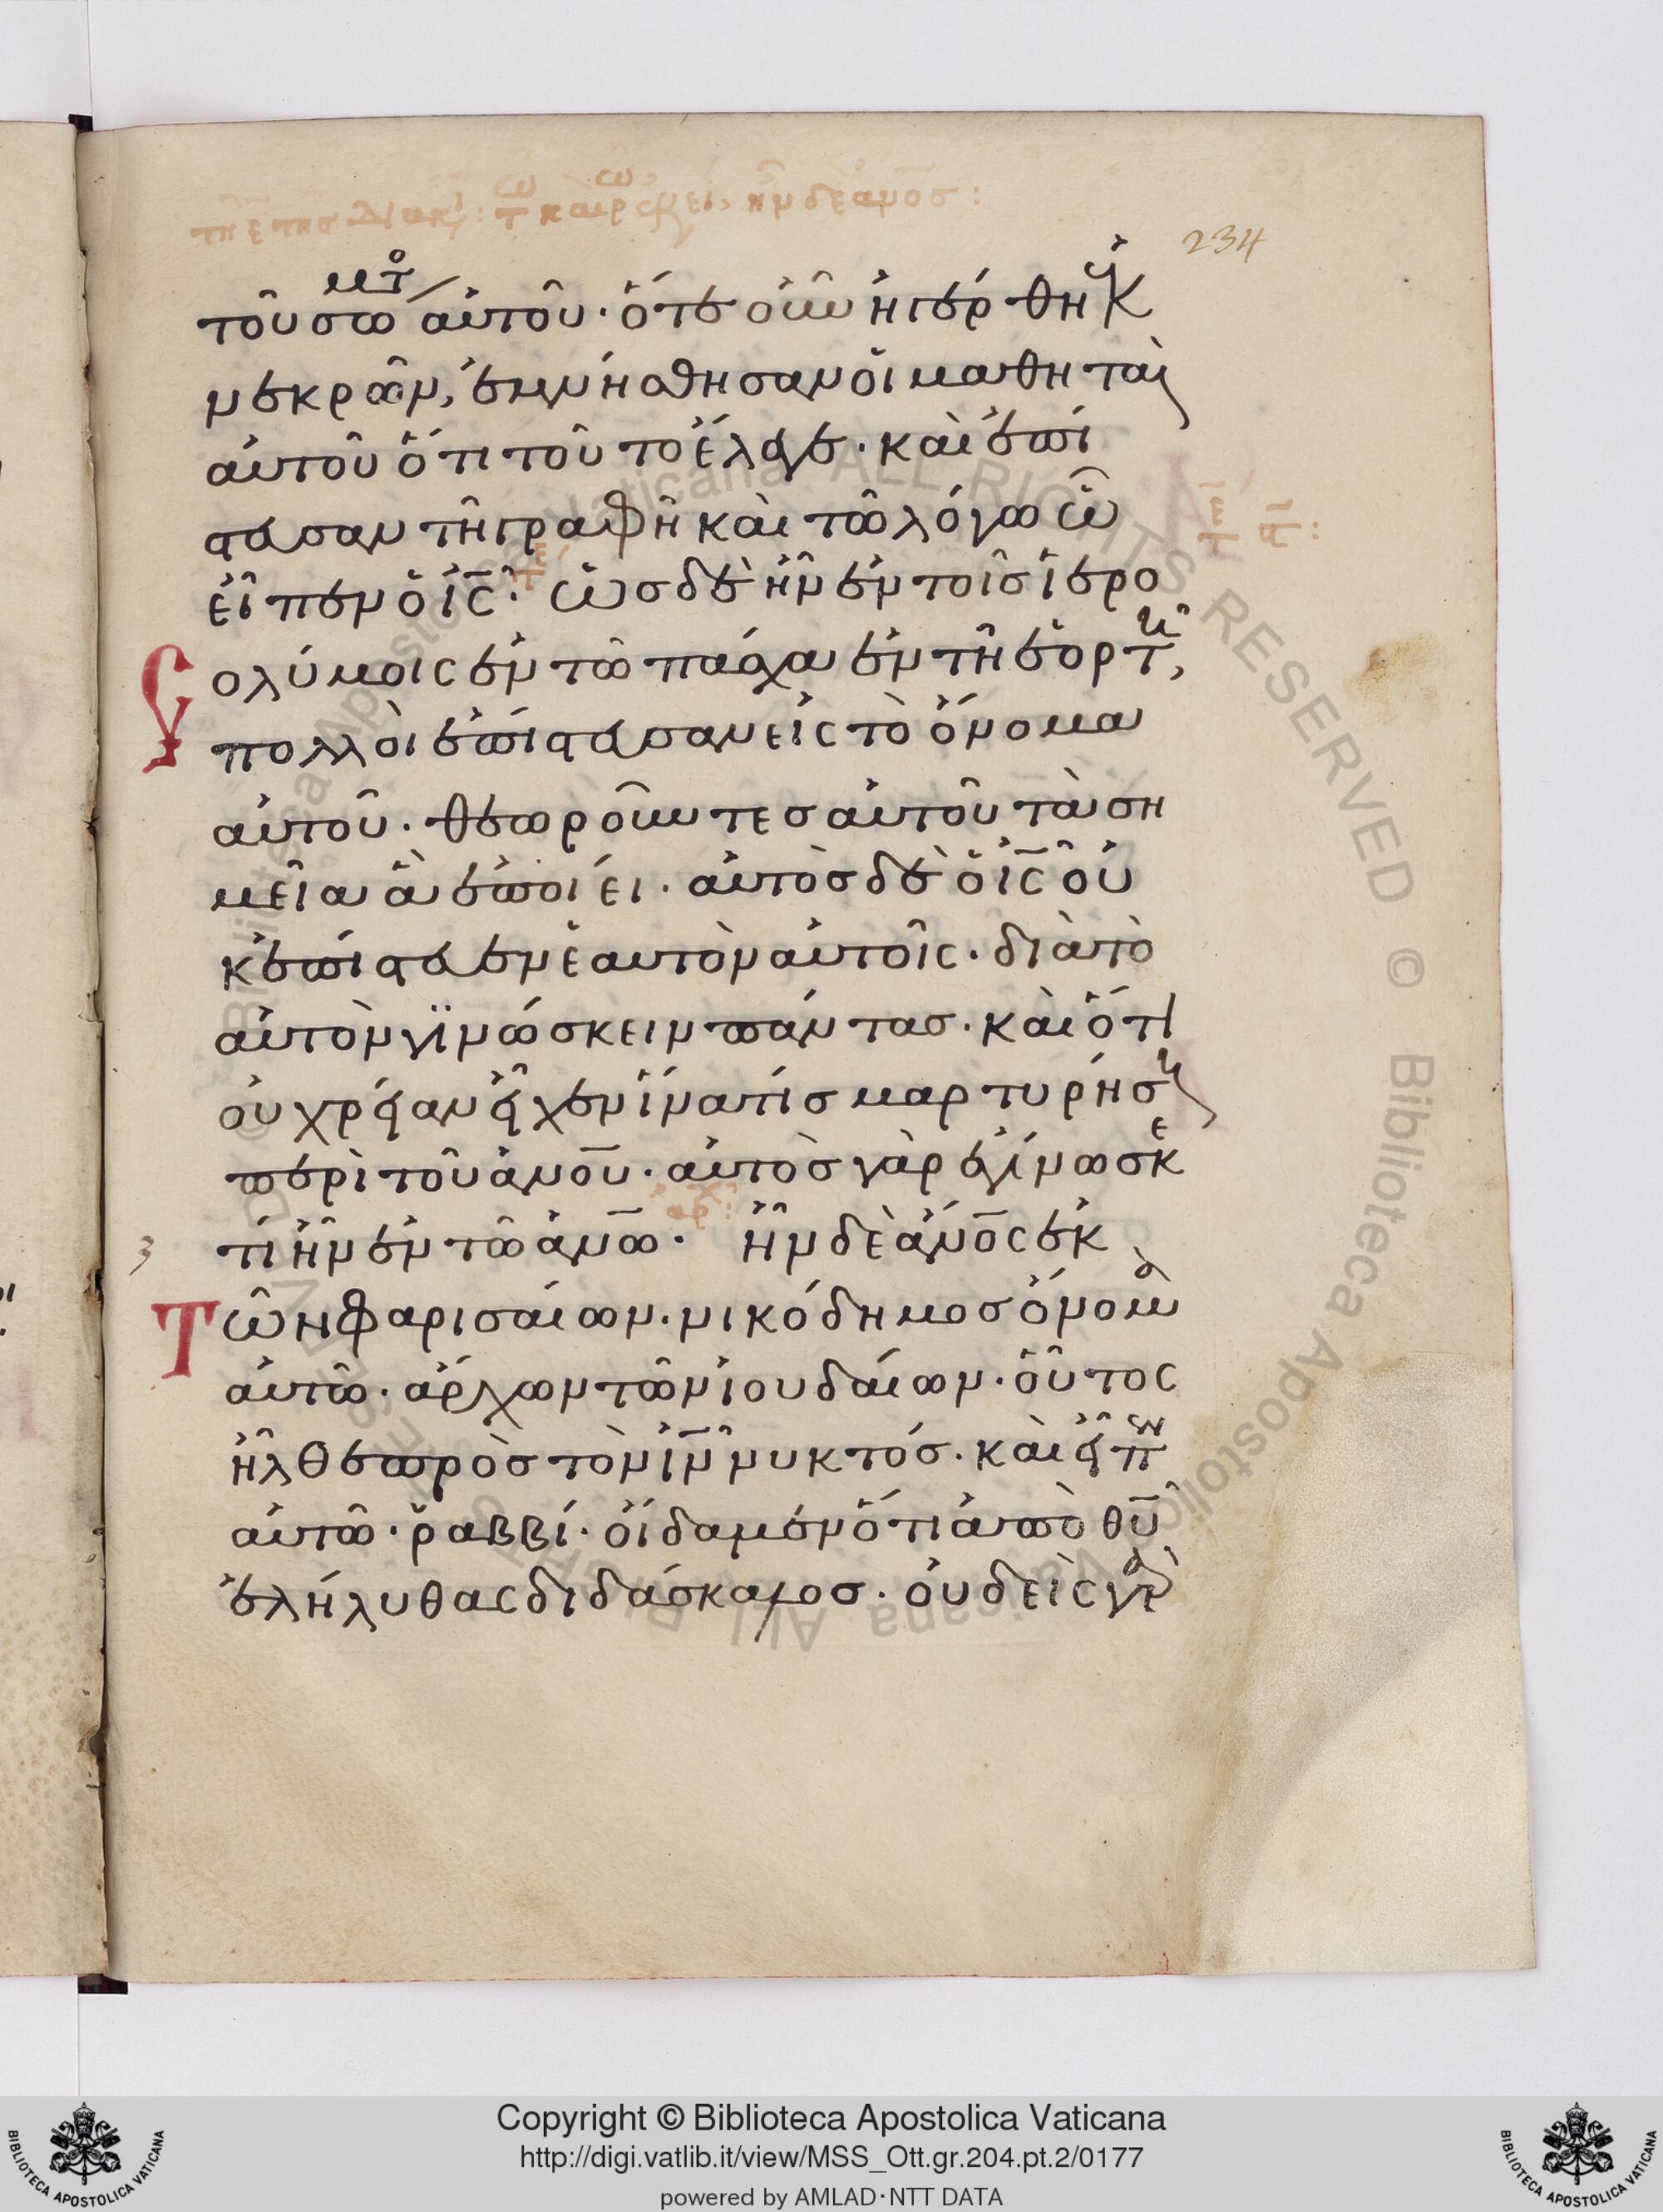 τῆ ε τῆς διακι: τ καιρ ἐκει, ἦν δε ανος:
234
τοῦ σώματο αὐτοῦ· ὅτε οὖν ἠγέρθη ἐκ
νεκρῶν, ἐμνήσθησαν οἱ μαθηταὶ
αὐτοῦ ὅτι τοῦτο ἔλεγε· καὶ ἐπί
στευσαν τῆ γραφῆ καὶ τῶ λόγω ὧ
εἶπεν ὁ ις· ὡς δὲ ἦν ἐν τοῖς ἱερο
σολύμοις ἐν τῶ πάσχα ἐν τῆ ἑορτῆ,
πολλοὶ ἐπίστευσαν εἰς τὸ ὄνομα
αὐτοῦ· θεωροῦντες αὐτοῦ τὰ ση
μεῖα ἃ ἐποίει· αὐτὸς δὲ ὁ ις οὐ
κ ἐπίστευεν ἑαυτὸν αὐτοῖς· διὰ τὸ
αὐτὸν γινώσκειν πάντας· καὶ ὅτι
οὐ χρείαν εἶχεν ἵνα τίς μαρτυρήση
περὶ τοῦ ανου· αὐτὸς γὰρ ἐγίνωσκε
τί ἦν ἐν τῶ ανω· ἦν δὲ ανος ἐκ
3
τῶν φαρισαίων· νικόδημος ὄνομα
αὐτῶ· ἄρχων τῶν ἰουδαίων· οὗτος
ἦλθε πρὸς τὸν ιν νυκτός· καὶ εἶπεν
αὐτῶ· ῥαββί· οἴδαμεν ὅτι ἀπὸ θυ
ἐλήλυθας διδάσκαλος· οὐδεὶς γὰρ
Copyright © Biblioteca Apostolica Vaticana
http://digi.vatlib.it/view/MSS_Ott.gr.204.pt.2/0177
powered by AMLAD·NTT DATA
BIBLIOTECA APOSTOLICA VATICANA
BIBLIOTECA APOSTOLICA VATICANA